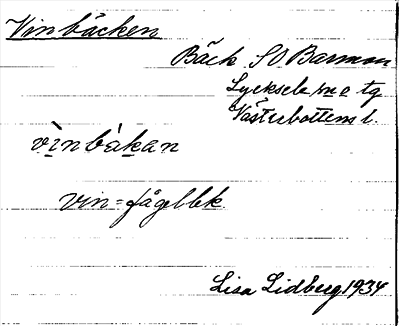 Vinbäcken
Bäck SO. Barmon
Lycksele sn o tg
Västerbottens l.
vìnbàkan
vin = fågellek
Lisa Lidberg 1934